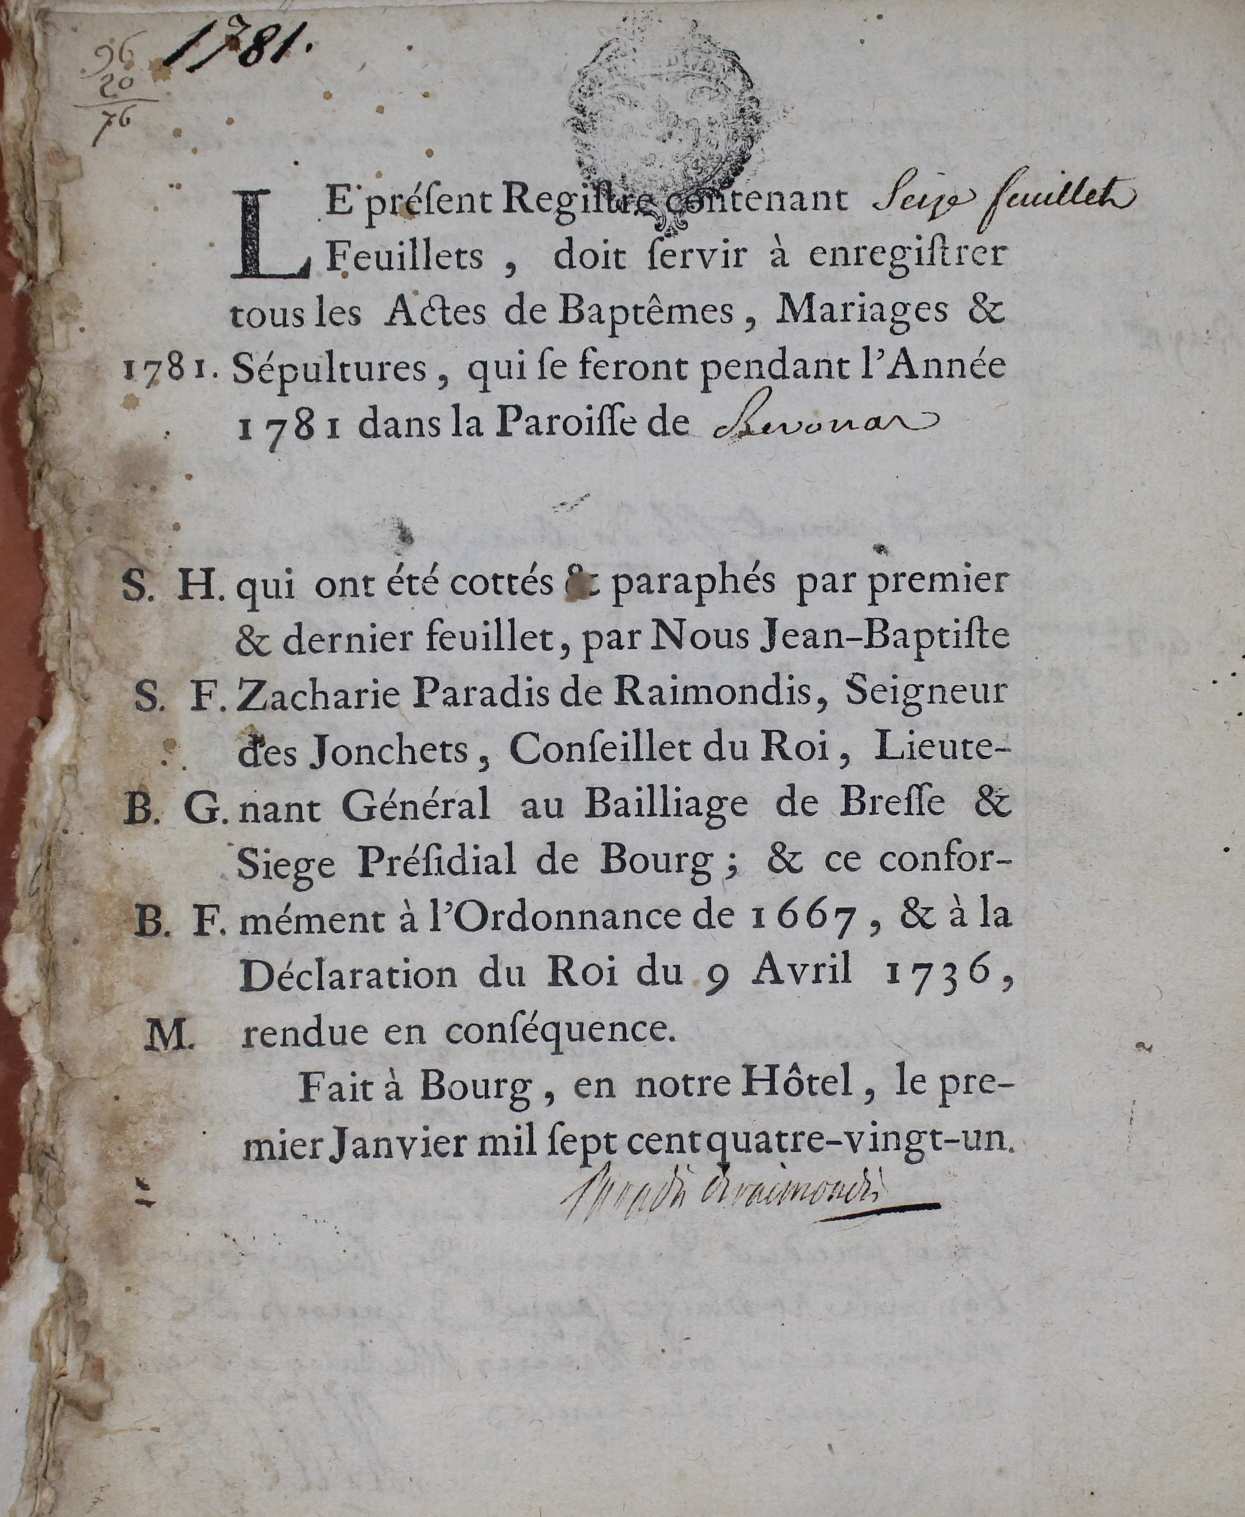 96
20
76
1781.
LE préſent Regiſtre contenant Seize feuillets
Feuillets , doit ſervir à enregiſtrer
tous les Actes de Baptêmes, Mariages &
1781. Sépultures, qui ſe feront pendant l'Année
1781 dans la Paroiſſe de
S. H. qui ont été cottés & paraphés par premier
& dernier feuillet, par Nous Jean-Baptiſte
S. F. Zacharie Paradis de Raimondis, Seigneur
des Jonchets, Conſeillet du Roi, Lieute-
B. G. nant Général au Bailliage de Breſſe &
Siege Préſidial de Bourg; & ce confor-
B. F. mément à l'Ordonnance de 1667, & à la
Déclaration du Roi du 9 Avril 1736,
M. rendue en conſéquence.
Fait à Bourg, en notre Hôtel, le pre-
mier Janvier mil ſept cent quatre-vingt-un.
Paradis de raimondis